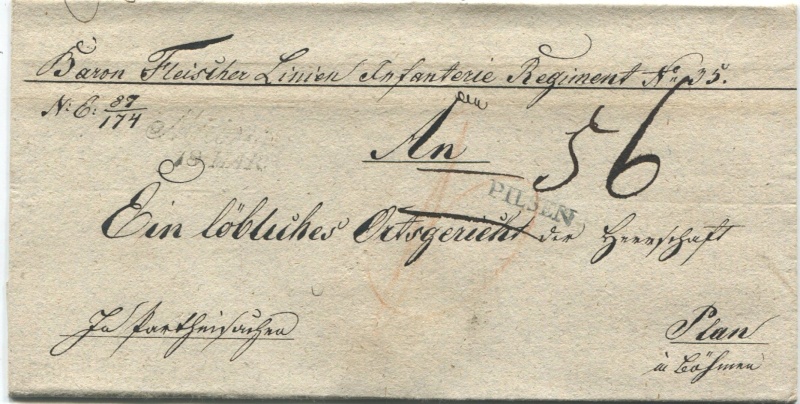 Baron Fleischer Linien Infanterie Regiment No 35.
N: E: 87/174
An
56
PILSEN
Ein löbliches Ortsgericht der Herrschaft
In Partheisachen
Plan
in Böhmen